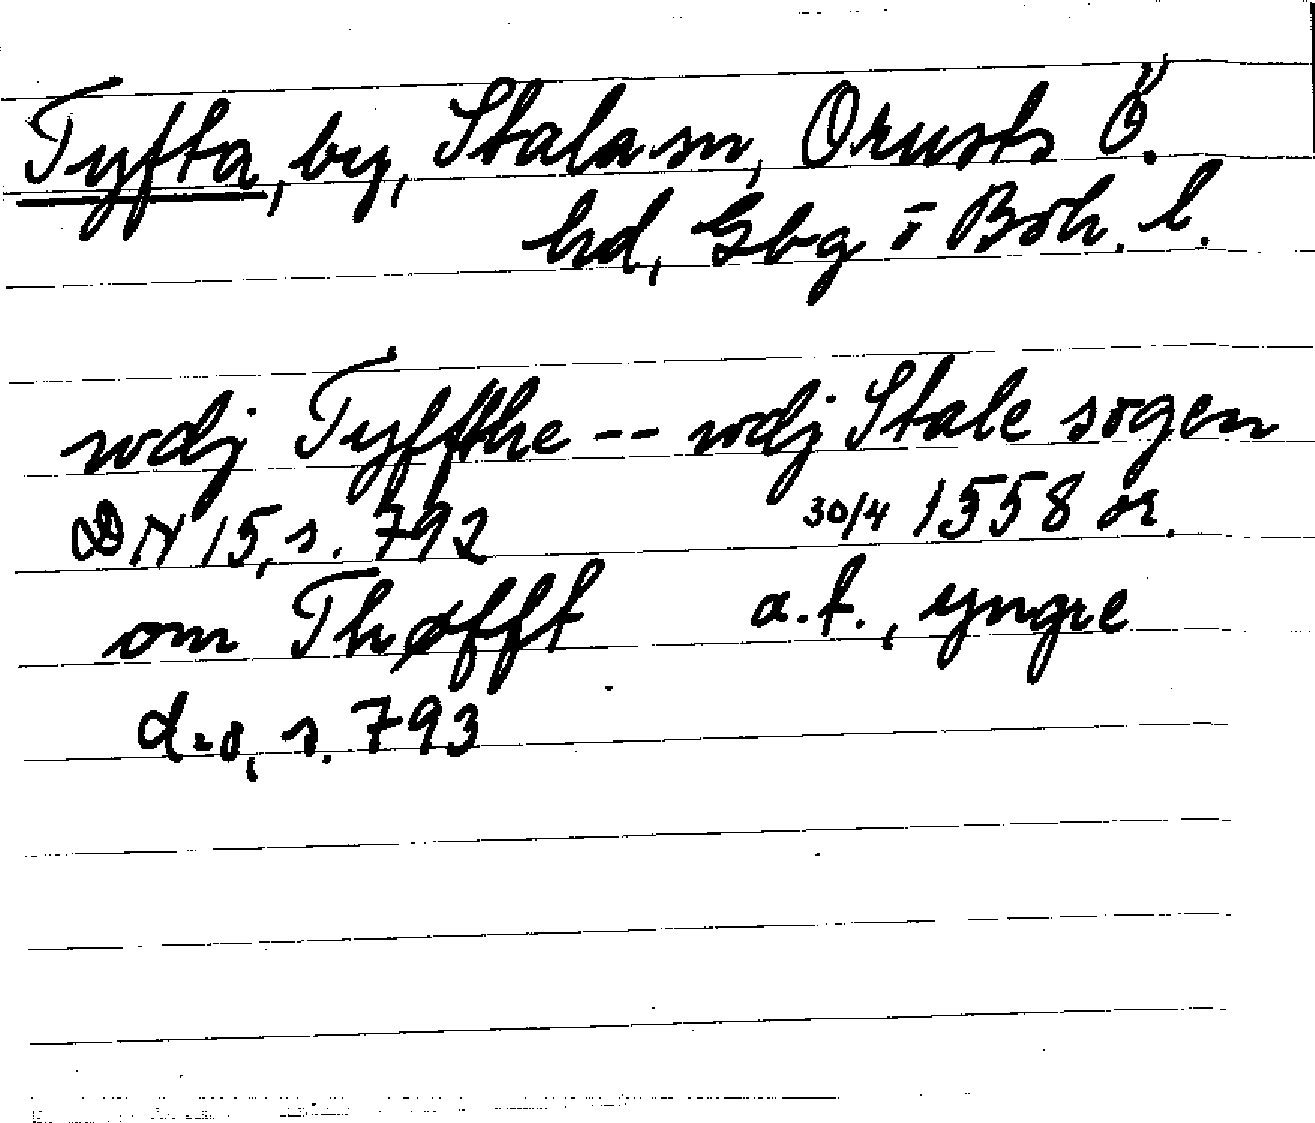 Tyfta, by, Stala sn, Orusts Ö.
hd, Gbg o Boh. l.
wdj Tyffthe -- wdj Stale sogen
DN 15, s. 792 30/4 1558 or.
om Thøfft a.t., yngre
d:o, s. 793